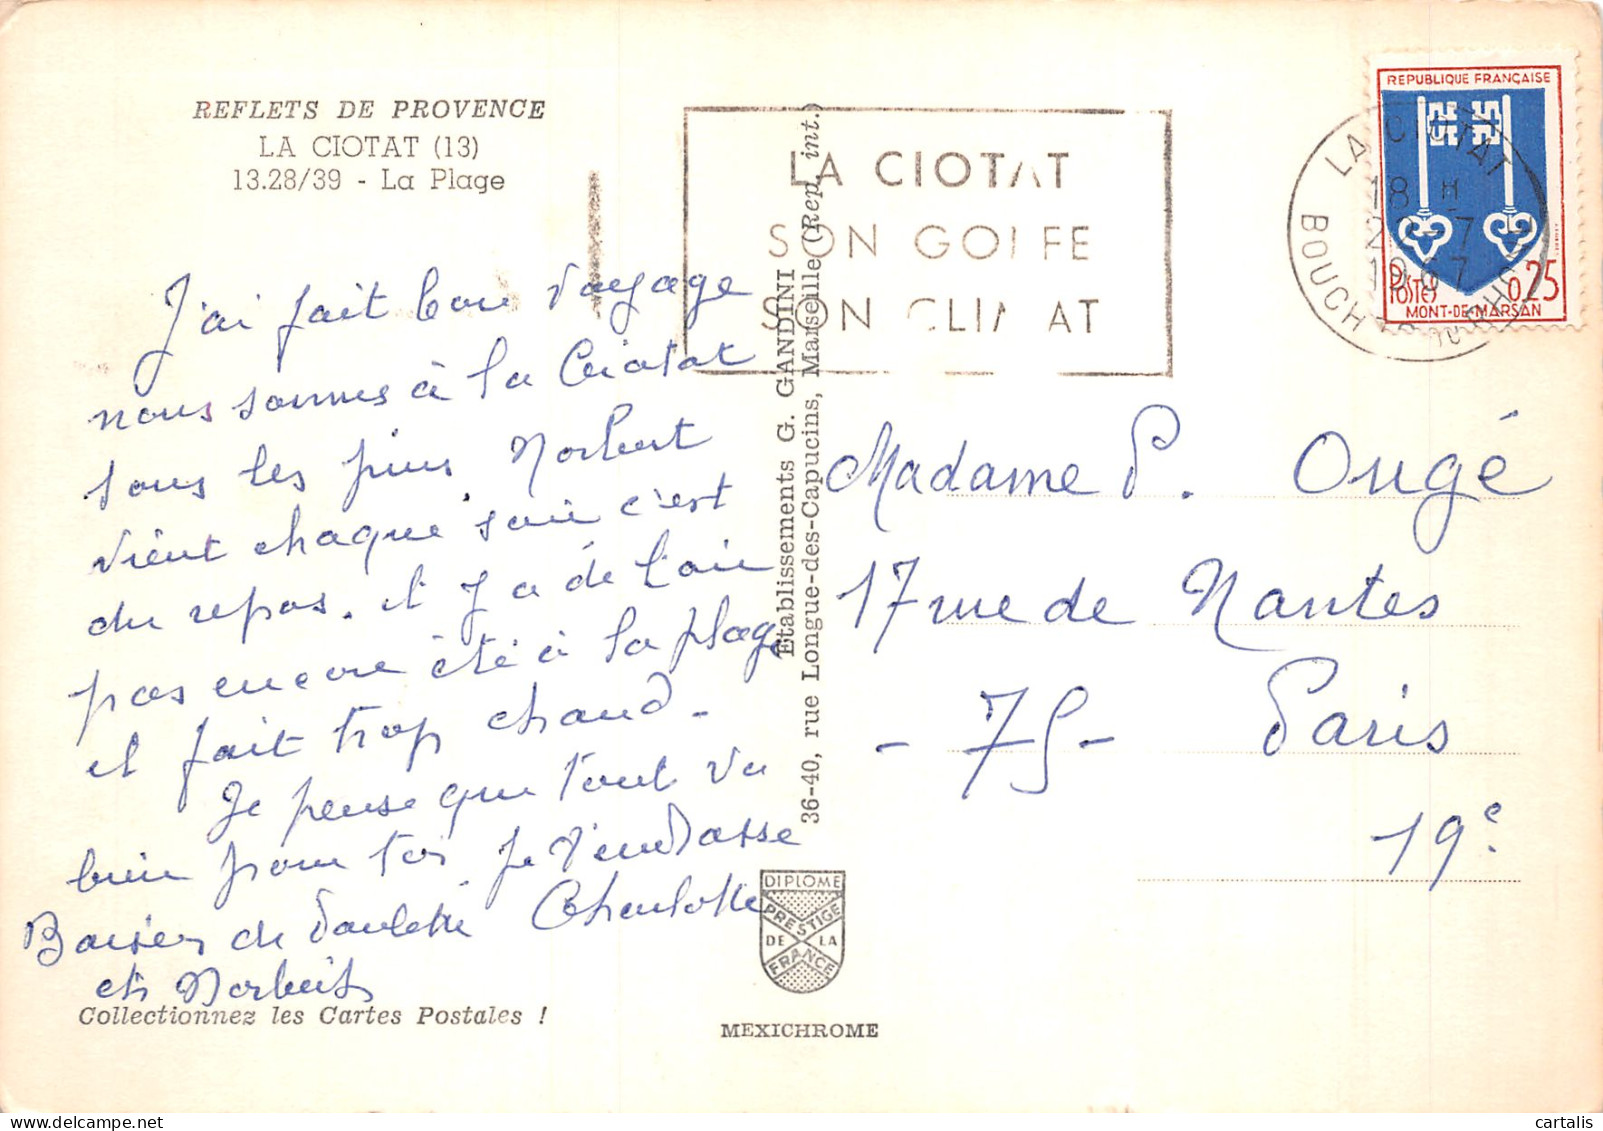 REFLETS DE PROVENCE
LA CIOTAT (13)
13.28/39 - La Plage
J'ai fait bon voyage
nous sommes à la Ciotat
sous les pins Norbert
vient chaque soir c'est
du repos. il y a de l'air
pas encore été à la plage
il fait trop chaud -
Je pense que tout va
bien pour toi je t'embrasse
Baisers de Paulette Charlotte
et Norbert
Collectionnez les Cartes Postales !
LA CIOTAT
SON GOLFE
SON CLIMAT
Etablissements G. GANDINI
36-40, rue Longue-des-Capucins, Marseille (Rep. int.)
DIPLOME
PRESTIGE
DE LA
FRANCE
MEXICHROME
REPUBLIQUE FRANÇAISE
POSTES
0,25
MONT-DE-MARSAN
LA CIOTAT
18 H
-7
1967
BOUCHES DU RHONE
Madame P. Ougé
17 rue de Nantes
- 75 - Paris
19e